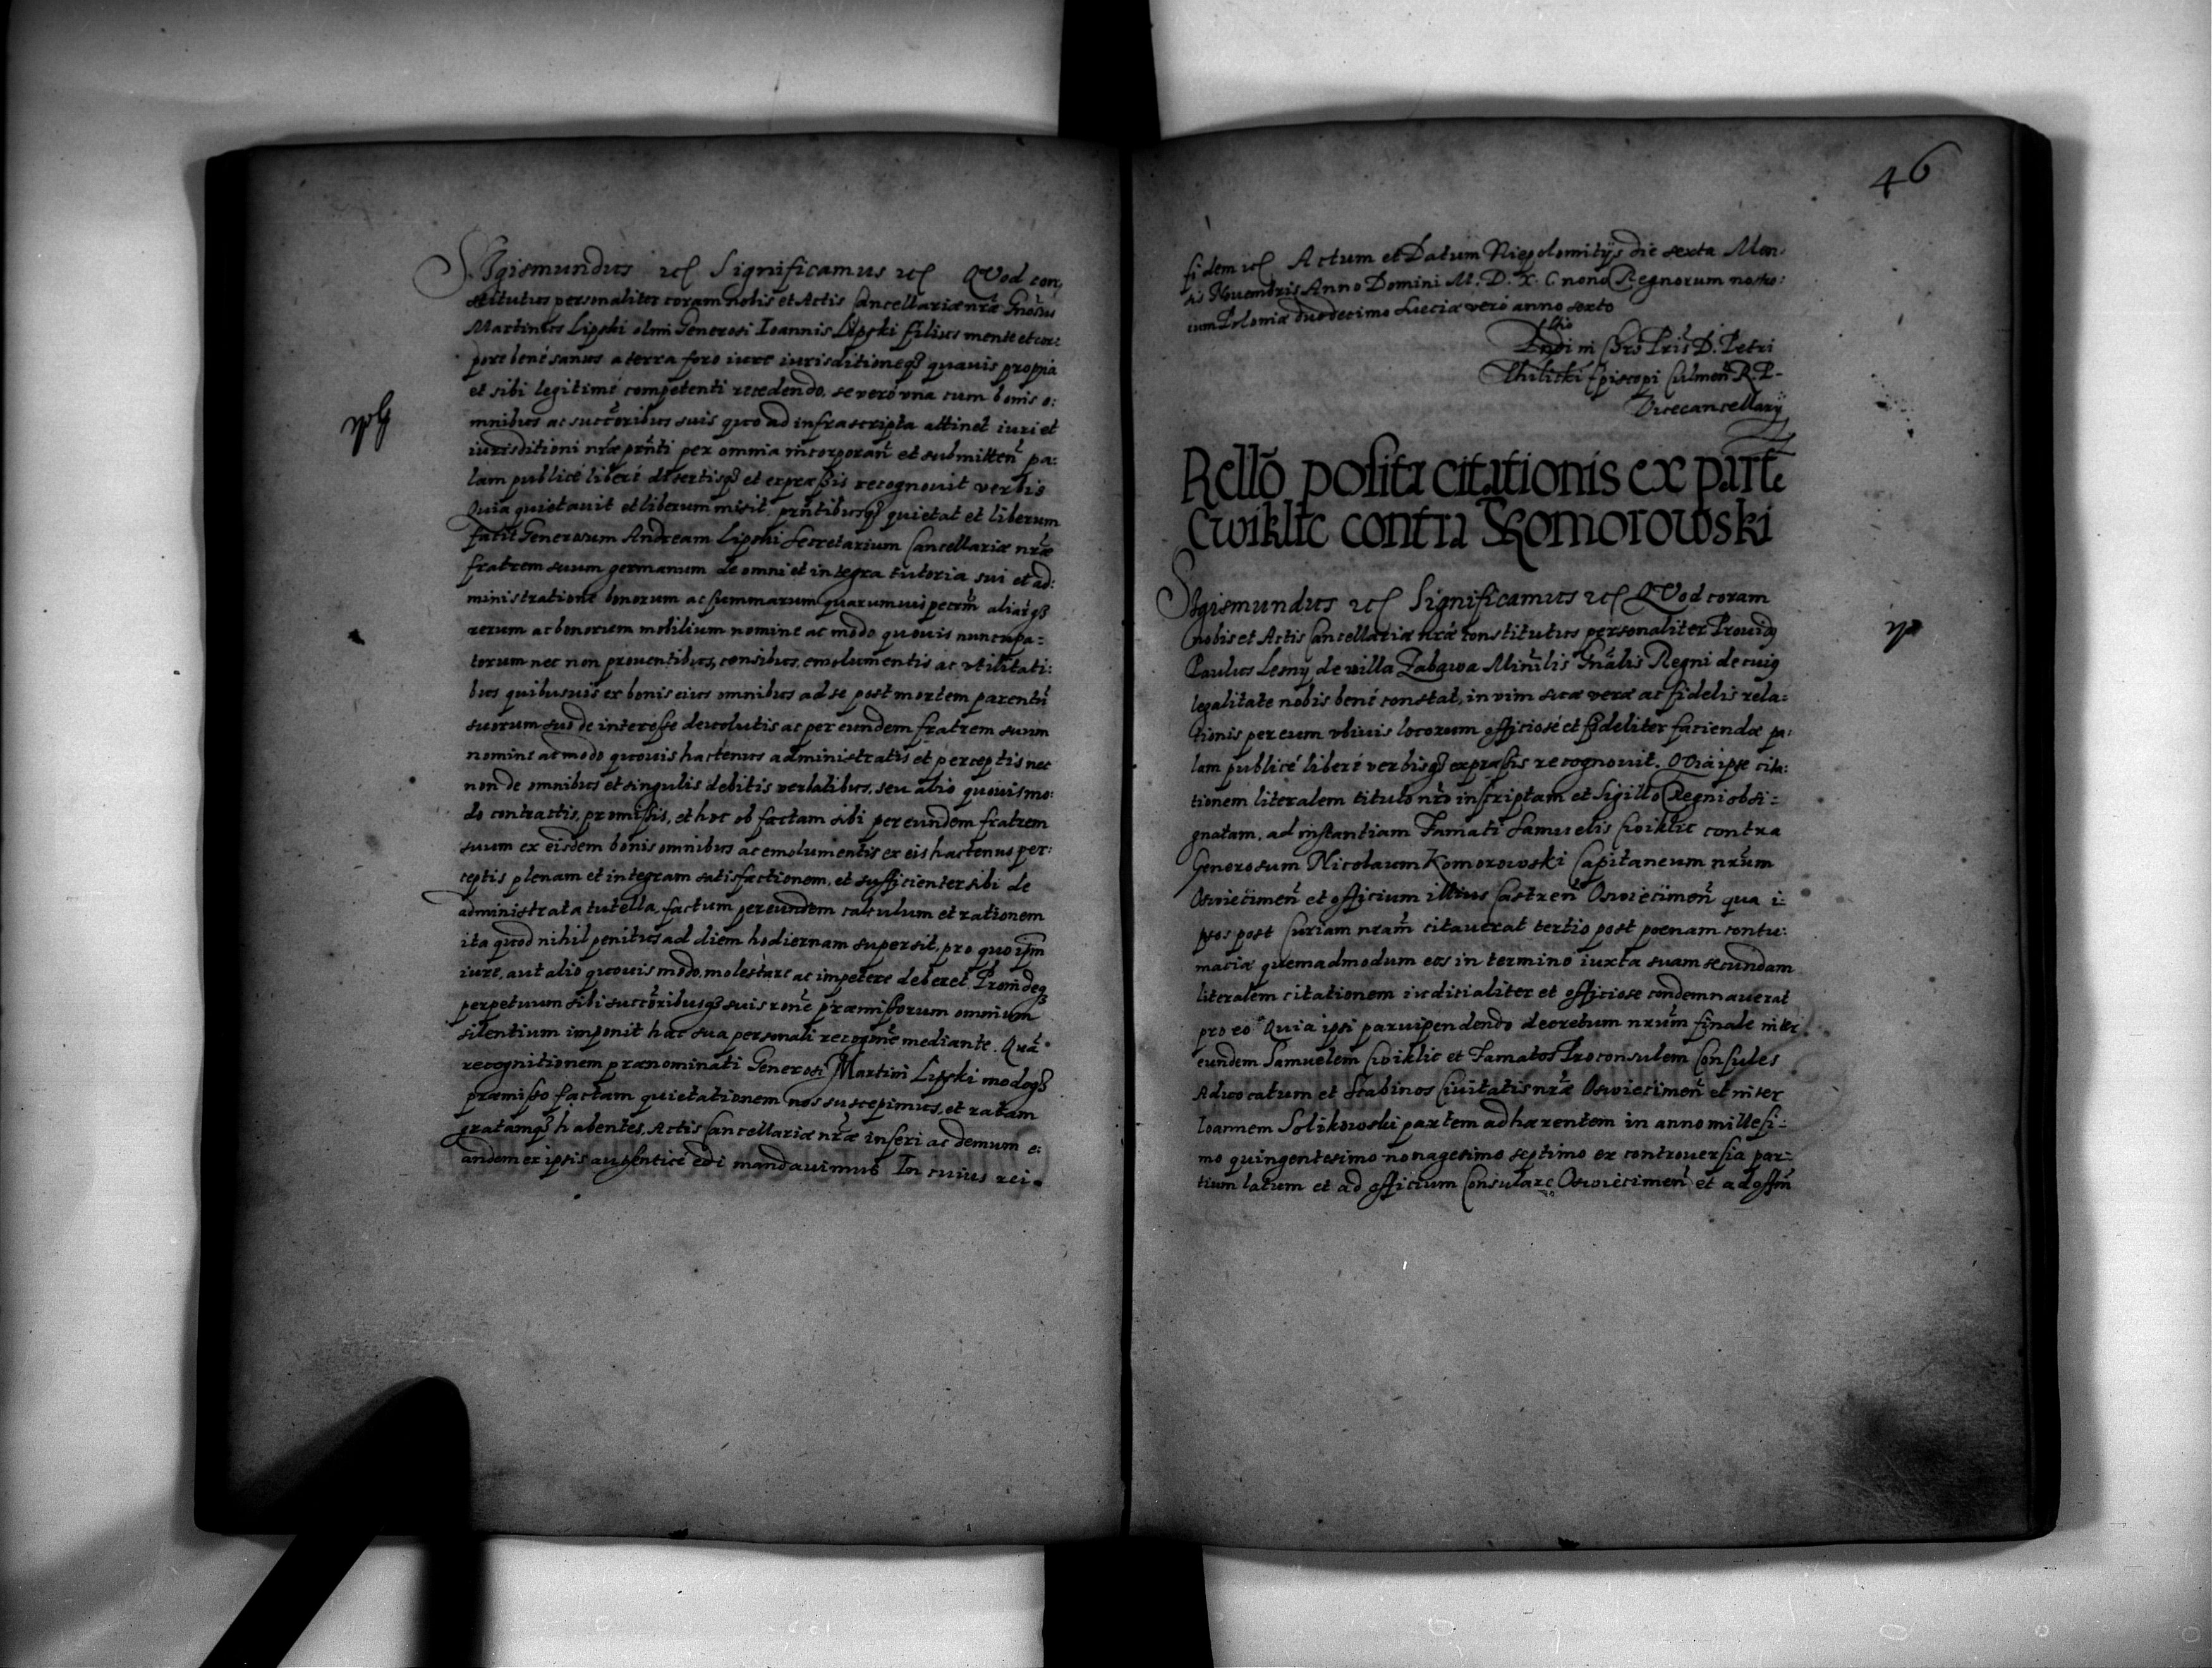 Sigismundus etc Significamus etc QVod con,
stitutus personaliter coram nobis et Actis Cancellariæ nrǽ Gnosus
Martinus Lipski olim Generosi Ioannis Lipski filius mente et cor:
pore bené sanus a terra foro iure iurisditioneq3 quauis propria
et sibi legitimé competenti recedendo, se veró vna cum bonis o:
mnibus ac succoribus suis quo ad infrascripta attinet iuri et
iurisditioni nrǽ prnti per omnia incorporan et submitten pa:
lam publicé liberé disertisq3 et expræssis recognouit verbis
Quia quietauit et liberum misit, prntibusq3 quietat et liberum
facit Generosum Andream Lipski Secretarium Cancellariæ nræ
fratrem suum germanum de omni et integra tutoria sui et ad:
ministratione bonorum ac summarum quarumuis pecrm aliarq3
rerum ac bonorum mobilium nomine ac modo quouis nuncupa=
torum nec non prouentibus, censibus, emolumentis ac vtilitati:
bus quibusuis ex bonis eius omnibus ad se post mortem parentu
suorum suo de interesse deuolutis ac per eundem fratrem suum
nomine ac modo quouis hactenus administratis et perceptis nec
non de omnibus et singulis debitis verbalibus, seu alio quouis mo:
do contractis, promissis, et hoc ob factam sibi per eundem fratrem
suum ex eisdem bonis omnibus ac emolumentis ex eis hactenus per:
ceptis plenam et integram satisfactionem, et sufficienter sibi de
administrata tutella, factum per eundem calculum et rationem
ita quod nihil penitus ad diem hodiernam supersit, pro quo ipm
iure, aut alio quouis modo, molestare ac impetere deberet. Proindeq3
perpetuum sibi succoribusq3 suis rone præmissorum omnium
silentium imponit hac sua personali recogne mediante. Qua
recognitionem prænominati Generosi Martini Lipski modoq3
præmisso factam quietationem nos suscepimus, et ratam
gratamq3 habentes, Actis Cancellariæ nræ inseri ac demum e:
andem ex ipsis authenticé edi mandauimus In cuius rei
46
fidem etc Actum et Datum Niepolomitijs die sexta Men:
sis Nouembris Anno Domini M. D. X. C nono Regnorum nostro:
rum Poloniæ duodecimo Sueciæ veró anno sexto
Rndi in Chro Pris D. Petri
Tilicki Episcopi Culmen R. P.
Vicecancellarij
Rello positæ citationis ex parte
Cwiklic contra Komorowski
Sigismundus etc Significamus etc QVod coram
nobis et Actis Cancellariæ nræ constitutus personaliter Prouidq
Paulus Lesny de villa Zabawa Minrlis Gnalis Regni de cuiq
legalitate nobis bené constat, in vim suæ veræ ac fidelis rela=
tionis per eum vbiuis locorum officiosé et fideliter faciendæ pa:
lam publicé liberé verbisq3 expræssis recognouit. QVia ipse cita:
tionem literalem titulo nro inscriptam et Sigillo Regni obsi=
gnatam, ad instantiam Famati Samuelis Cwiklic contra
Generosum Nicolaum Komorowski Capitaneum nrum
Oswiecimen et officium illius Castren Oswiecimen qua i:
psos post Curiam nram citauerat tertio post poenam contu:
maciæ quemadmodum eos in termino iuxta suam secundam
literalem citationem iudicialiter et officiose condemnauerat
pro eo Quia ipsi paruipendendo decretum nrum finale inter
eundem Samuelem Cwiklic et Famatos Proconsulem Consules
Aduocatum et Scabinos Ciuitatis nræ Oswiecimen et inter
Ioannem Solikowski partem adhærentem in anno millesi=
mo quingentesimo nonagesimo septimo ex controuersia par=
tium latum et ad officium Consulare Oswiecimen et ad offm